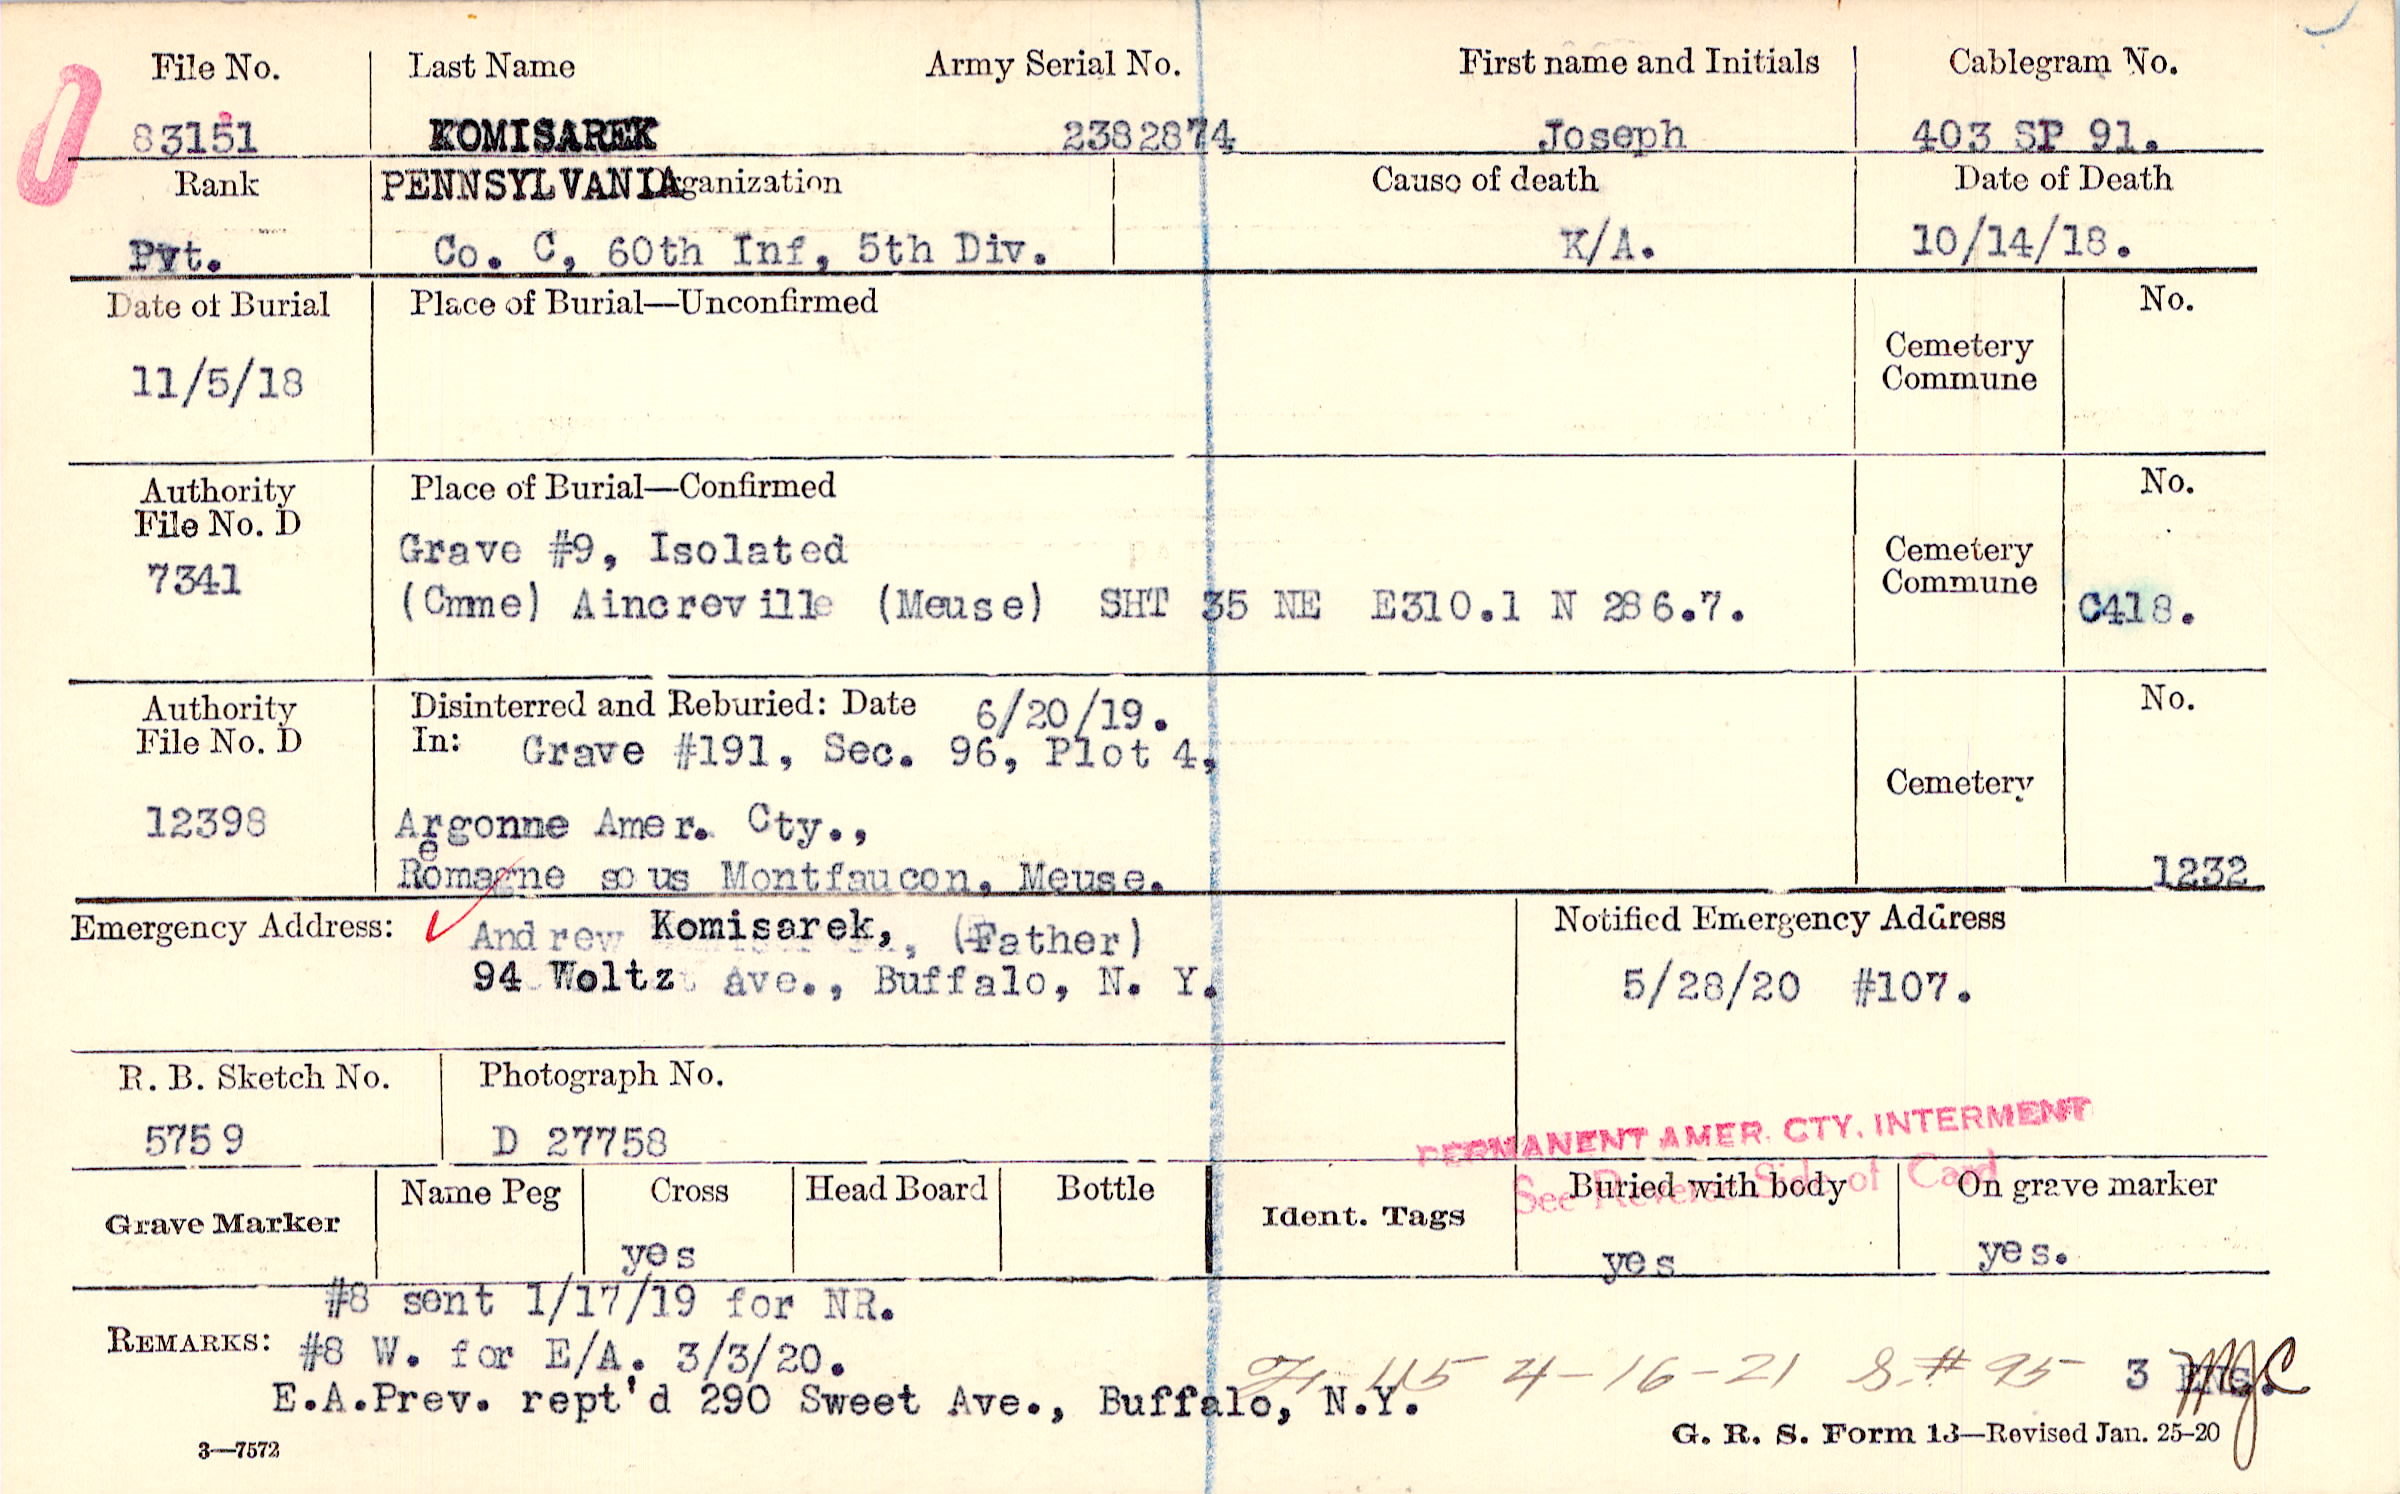 File No. Last Name Army Serial No. First name and Initials Cablegram No.
83151 KOMISAREK 2382874 Joseph 403 SP 91.
Rank PENNSYLVANIA Organization Cause of death Date of Death
Pvt. Co. C, 60th Inf, 5th Div. K/A. 10/14/18.
Date of Burial Place of Burial—Unconfirmed No.
Cemetery
Commune
11/5/18
Authority Place of Burial—Confirmed No.
File No. D
7341 Grave #9, Isolated Cemetery
(Cmne) Aincreville (Meuse) SHT 35 NE E310.1 N 286.7. Commune C418.
Authority Disinterred and Reburied: Date 6/20/19. No.
File No. D In: Grave #191, Sec. 96, Plot 4,
Cemetery
12398 Argonne Amer. Cty.,
Romagne sous Montfaucon, Meuse. 1232
Emergency Address: Andrew Komisarek, (Father) Notified Emergency Address
94 Woltz ave., Buffalo, N. Y. 5/28/20 #107.
R. B. Sketch No. Photograph No.
5759 D 27758
PERMANENT AMER. CTY. INTERMENT
See Reverse Side of Card
Grave Marker Name Peg Cross Head Board Bottle Ident. Tags Buried with body On grave marker
yes yes yes.
#8 sent 1/17/19 for NR.
REMARKS: #8 W. for E/A. 3/3/20.
4-16-21 S.# 95 3 MJC
E.A.Prev. rept'd 290 Sweet Ave., Buffalo, N.Y.
3—7572 G. R. S. Form 13—Revised Jan. 25-20